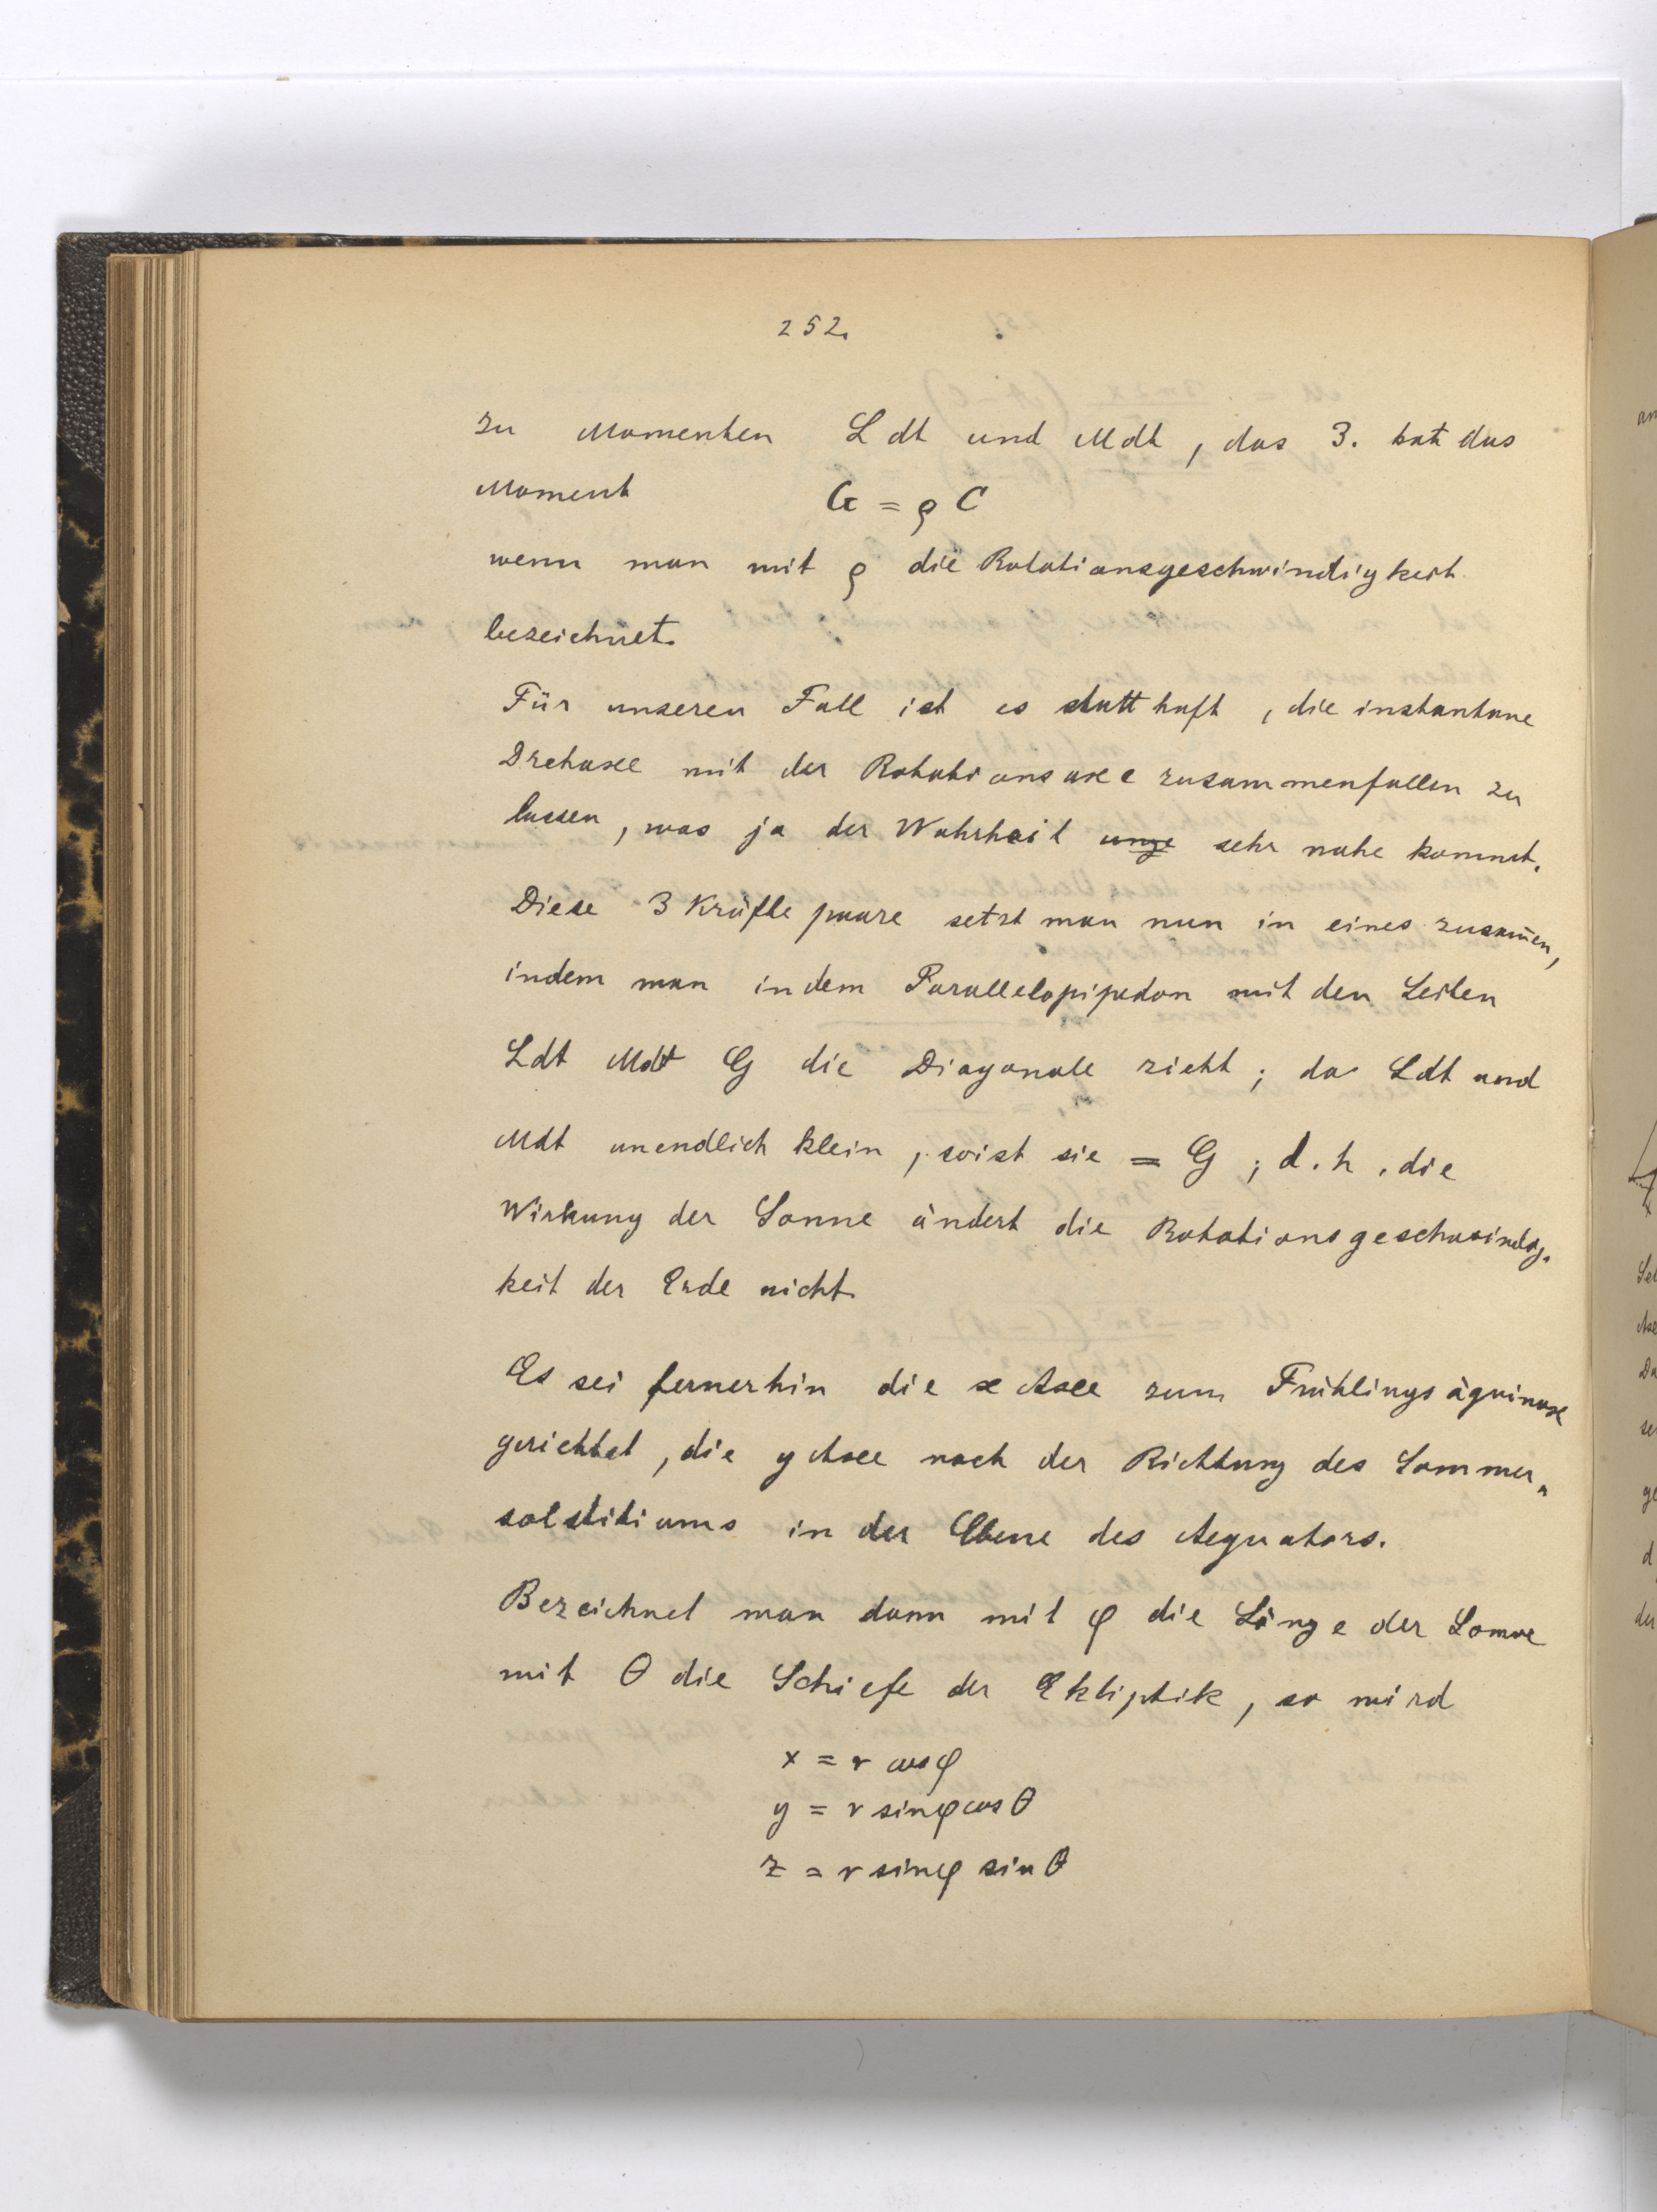 252.
zu Momenten L dt und M dt, das 3. hat das
Moment G = ρ C
wenn man mit ρ die Rotationsgeschwindigkeit
bezeichnet.
Für unseren Fall ist es statthaft, die instantane
Drehaxe mit der Rotationsaxe zusammenfallen zu
lassen, was ja der Wahrheit unge sehr nahe kommt.
Diese 3 Kräftepaare setzt man nun in eines zusam̄en,
indem man in dem Parallelopipedon mit den Seiten
Ldt Mdt G die Diagonale zieht; da Ldt und
Mdt unendlich klein, so ist sie = G; d.h. die
Wirkung der Sonne ändert die Rotationsgeschwindig-
keit der Erde nicht.
Es sei fernerhin die x Axe zum Frühlingsäquinox
gerichtet, die y Axe nach der Richtung des Sommer-
solstitiums in der Ebene des Aequators.
Bezeichnet man dann mit φ die Länge der Sonne
mit θ die Schiefe der Ekliptik, so wird
x = r cos φ
y = r sin φ cos θ
z = r sin φ sin θ